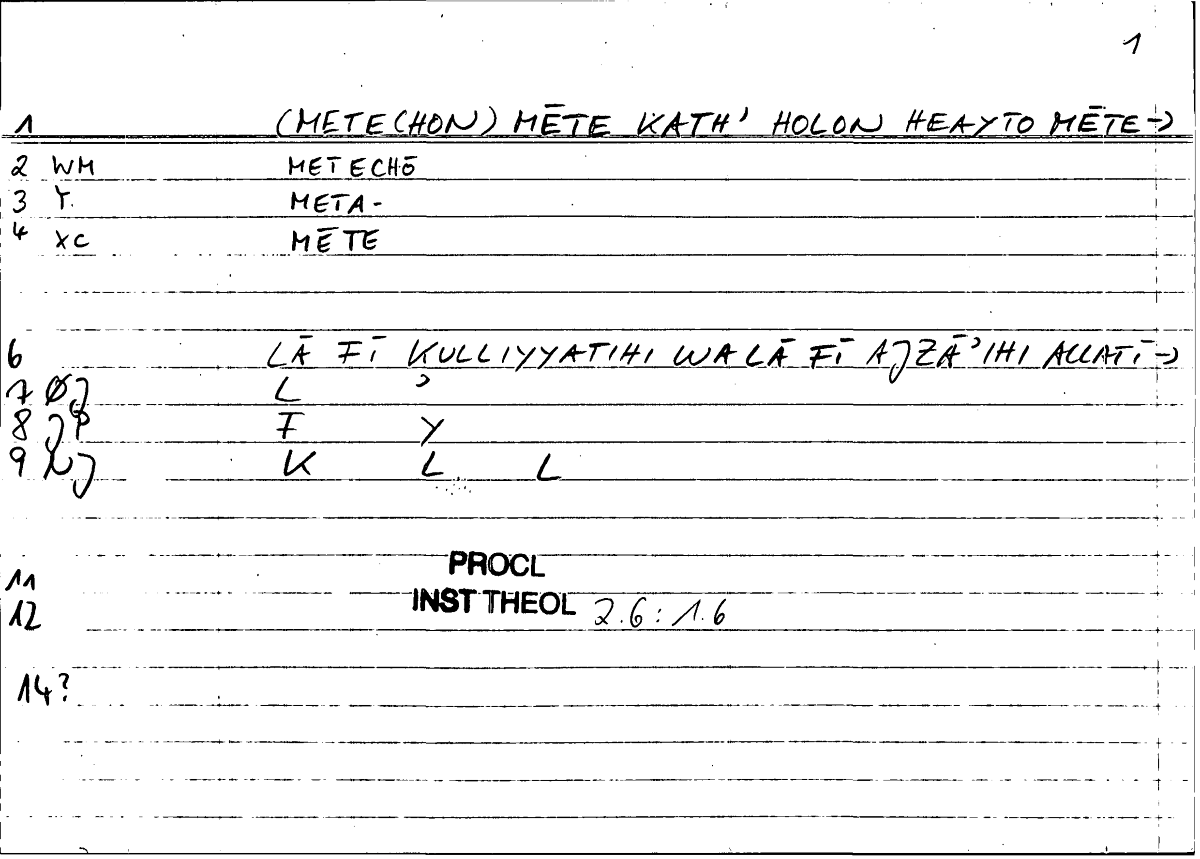 1
1 (METECHON) MĒTE KATH' HOLON HEAYTO MĒTE→
2 WM METECHŌ
3 Y. META-
4 XC MĒTE
6 LĀ FĪ KULLIYYATIHI WALĀ FĪ AJZĀʾIHI ALLATĪ→
7 ØJ L ʾ
8 JP F Y
9 NJ K L L
11 PROCL
12 INST THEOL 2.6: 1.6
14?